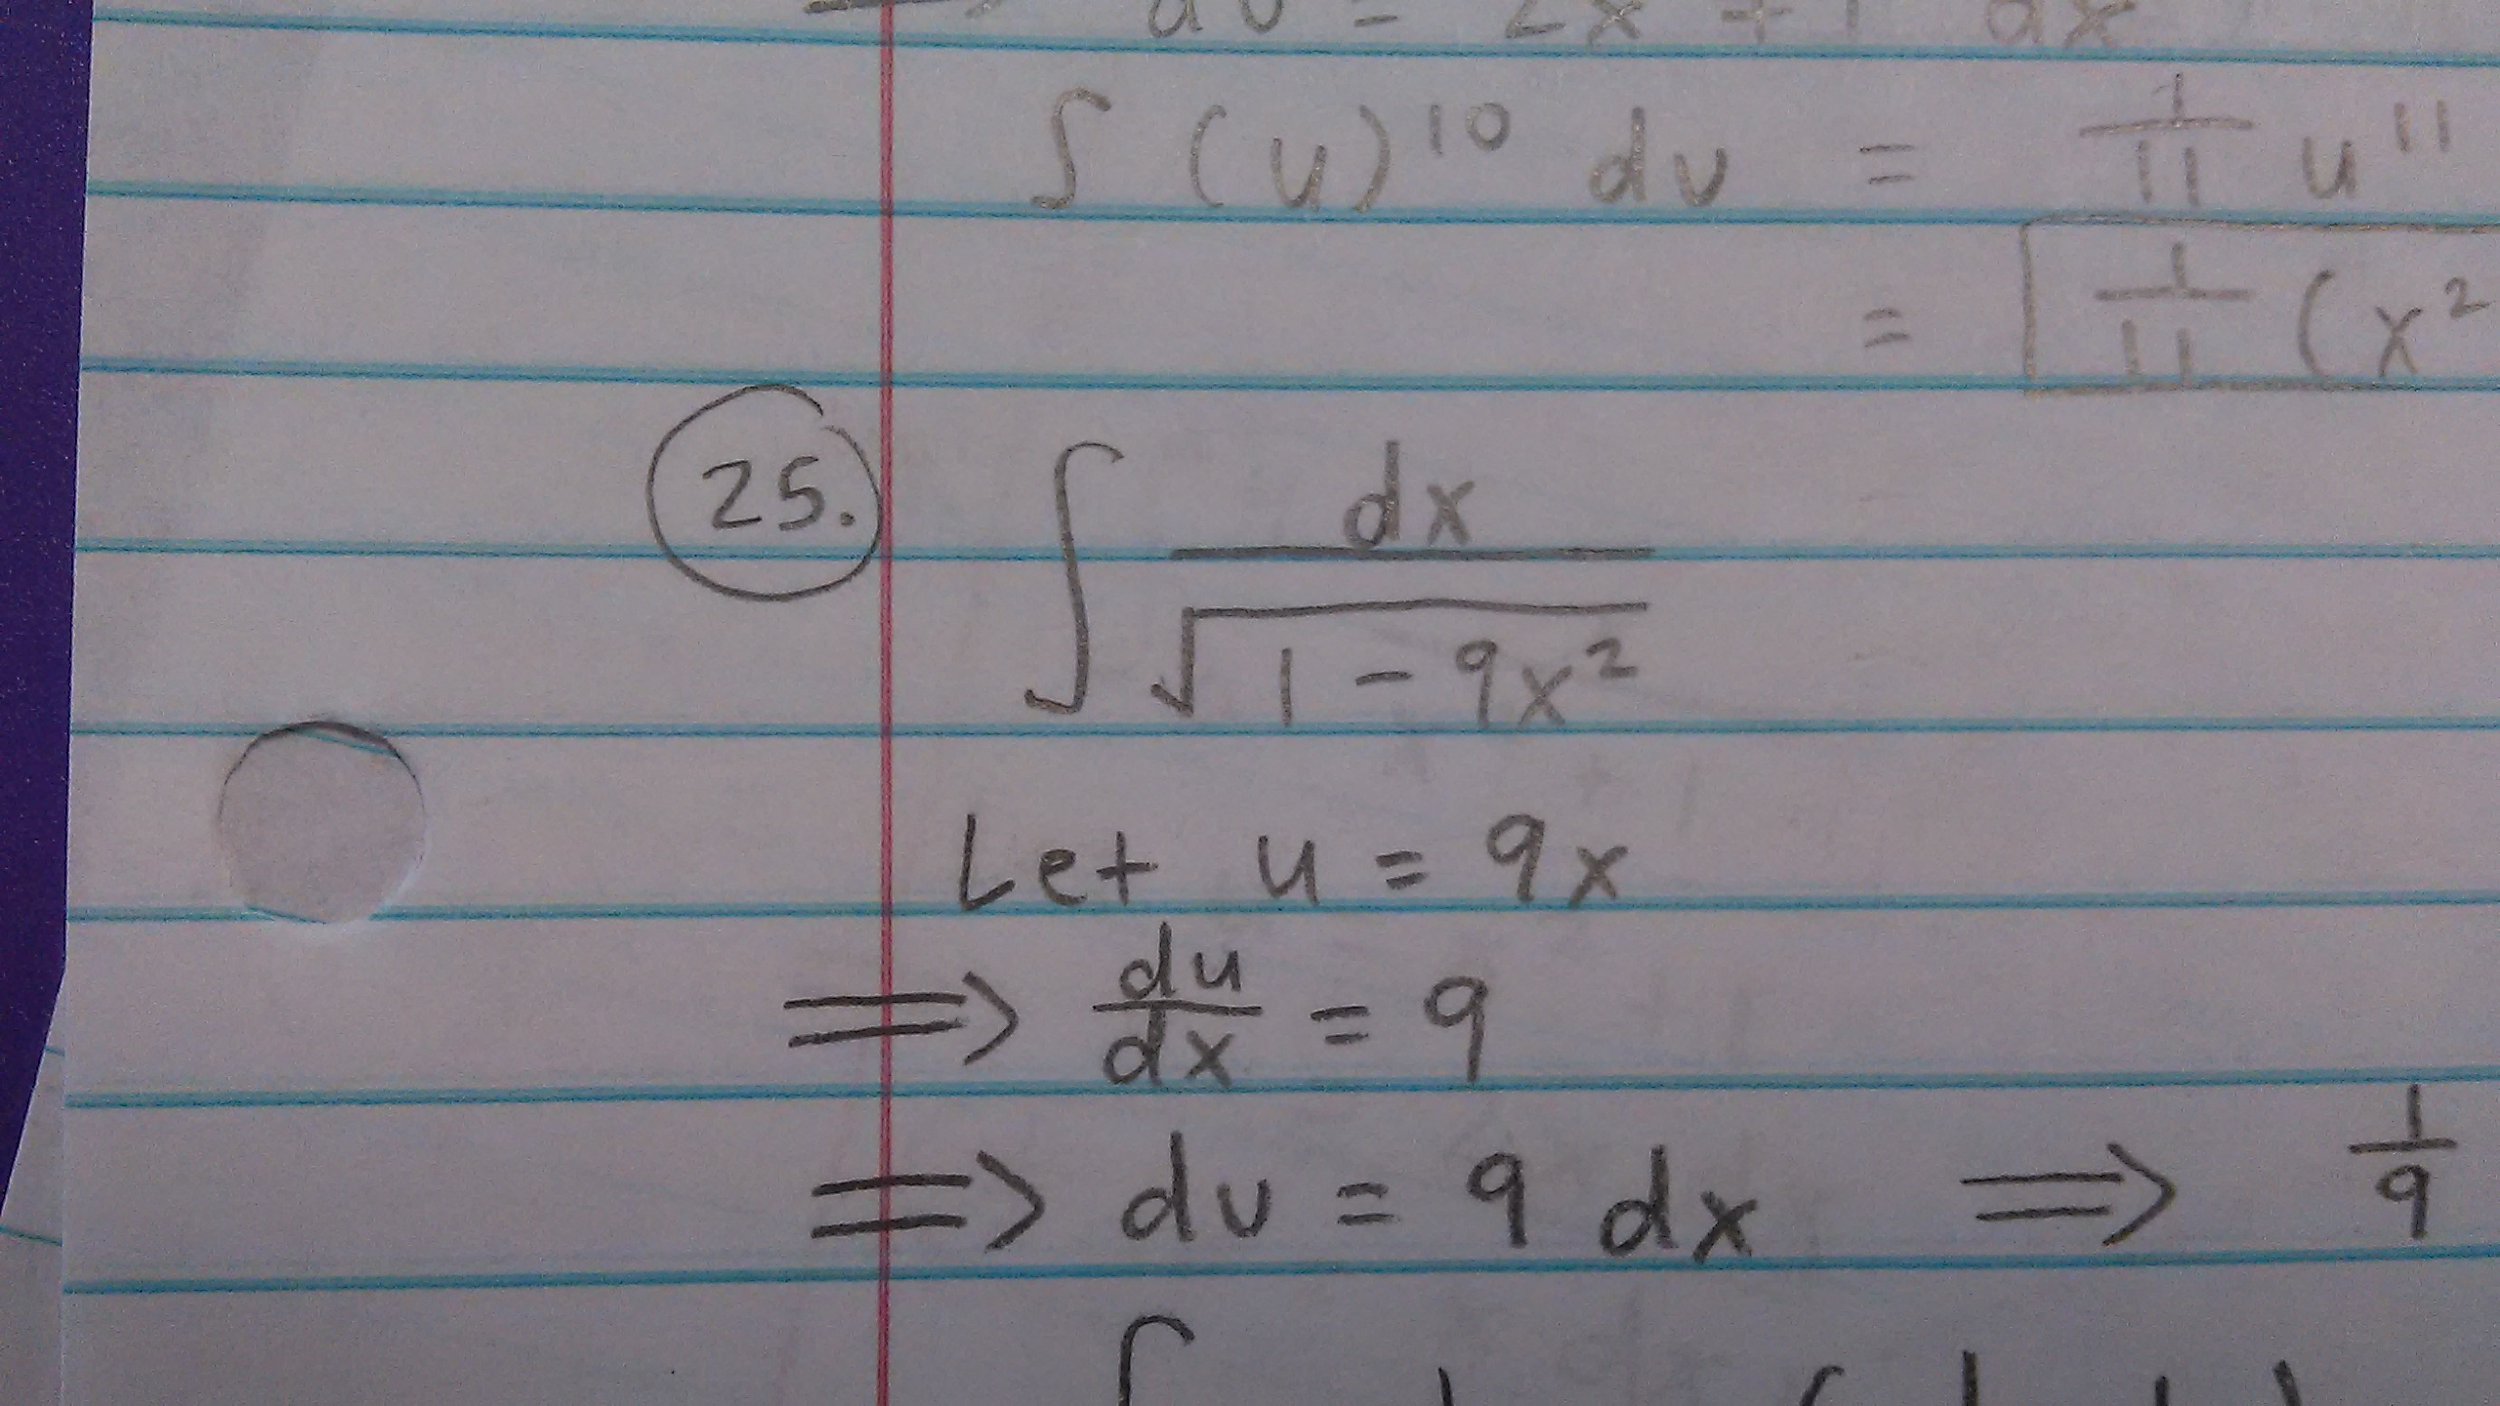 du = 2x + 1 dx
∫ (u)^10 du = 1/11 u^11
= 1/11 (x^2
25. ∫ dx / √(1 - 9x^2)
Let u = 9x
⟹ du/dx = 9
⟹ du = 9 dx ⟹ 1/9